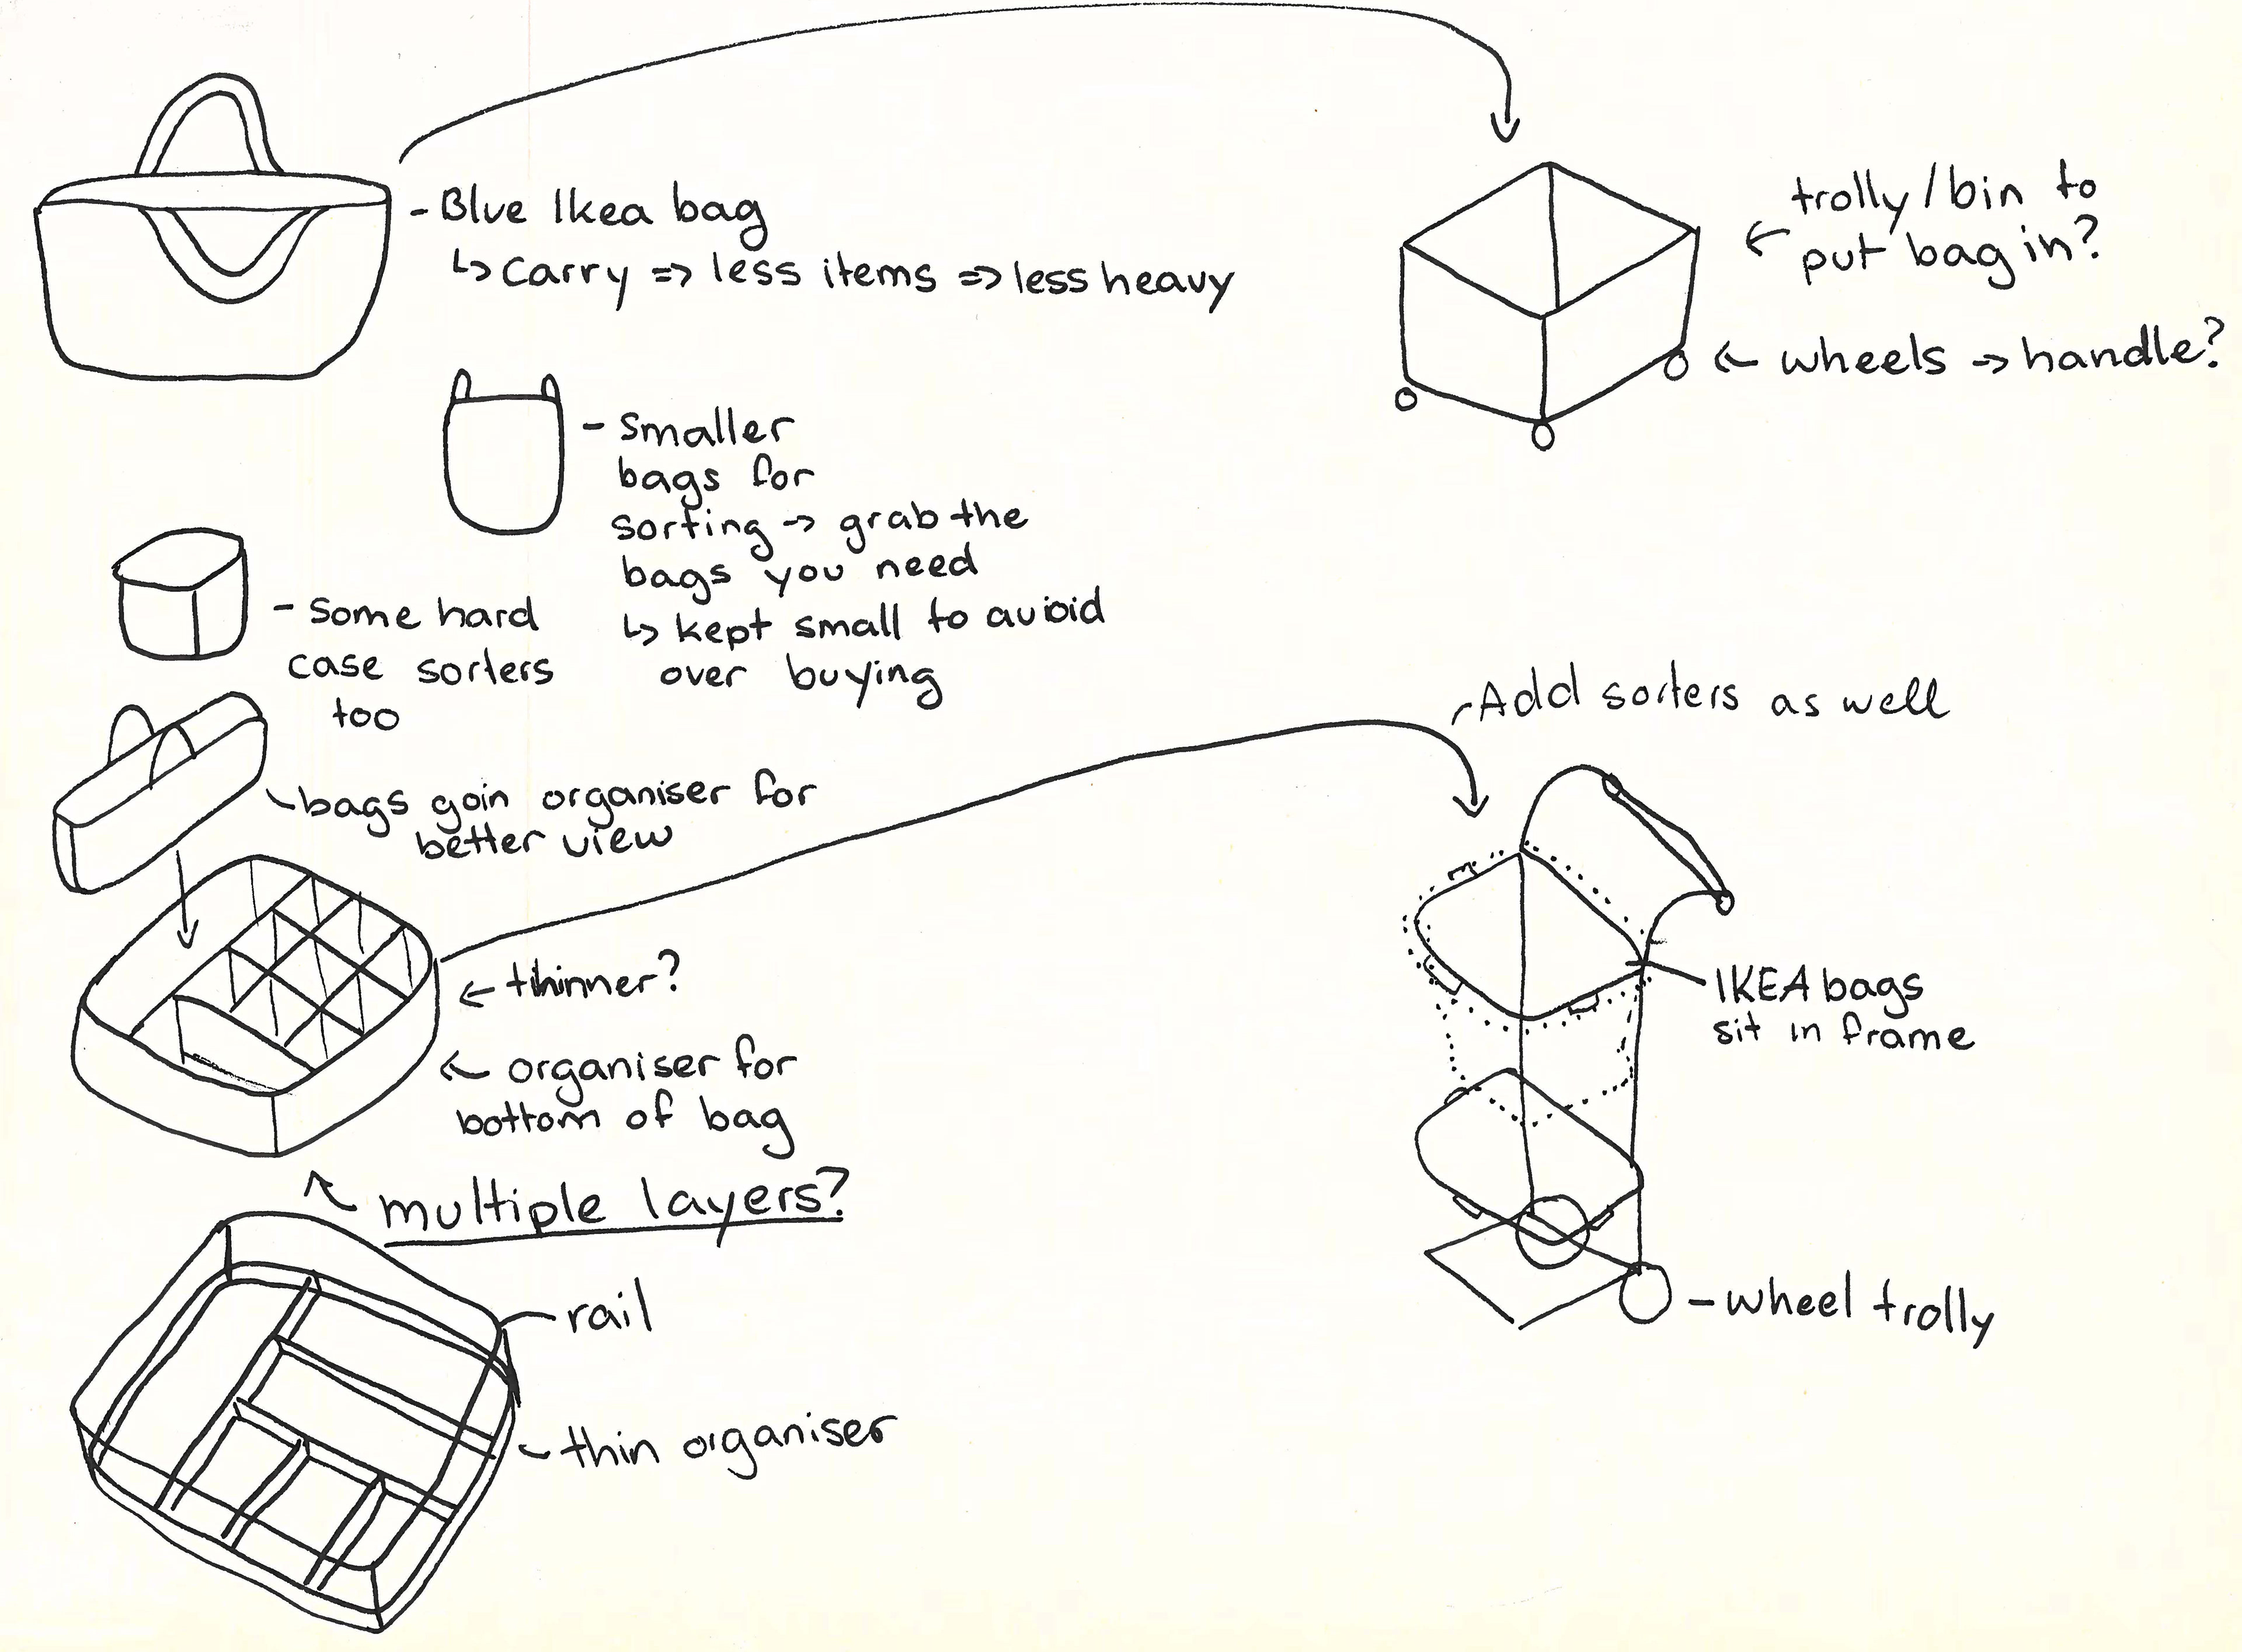 - Blue Ikea bag
↳ carry => less items => less heavy
trolly/bin to
← put bag in?
← wheels -> handle?
- smaller
bags for
sorting -> grab the
bags you need
↳ kept small to avioid
over buying
- some hard
case sorters
too
bags go in organiser for
better view
← thinner?
← organiser for
bottom of bag
multiple layers?
rail
thin organiser
Add sorters as well
IKEA bags
sit in frame
- wheel trolly